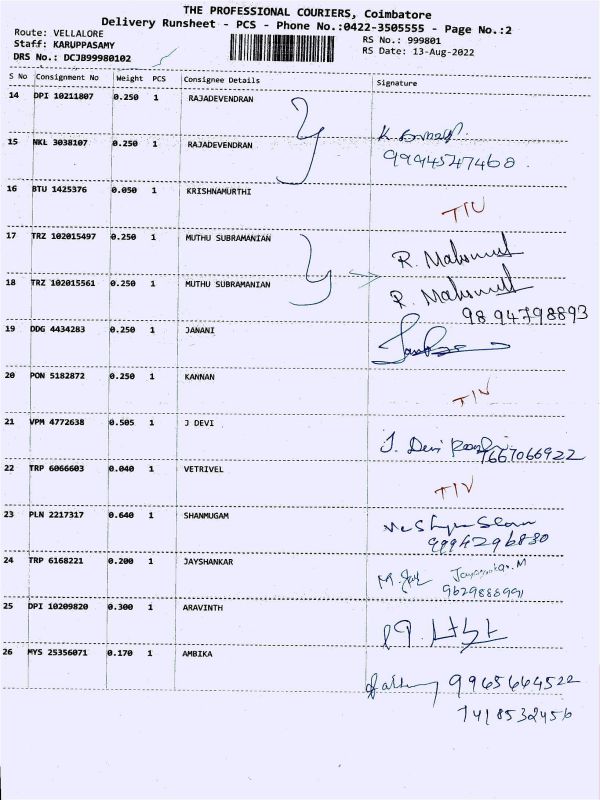 THE PROFESSIONAL COURIERS, Coimbatore
Delivery Runsheet - PCS - Phone No.:0422-3505555 - Page No.:2
Route: VELLALORE
RS No.: 999801
Staff: KARUPPASAMY
RS Date: 13-Aug-2022
DRS No.: DCJB99980102
S No Consignment No Weight PCS Consignee Details Signature
14 DPI 10211807 0.250 1 RAJADEVENDRAN
15 NKL 3038107 0.250 1 RAJADEVENDRAN
9994547468
16 BTU 1425376 0.050 1 KRISHNAMURTHI
TIV
17 TRZ 102015497 0.250 1 MUTHU SUBRAMANIAN
R.
18 TRZ 102015561 0.250 1 MUTHU SUBRAMANIAN
R.
9894798893
19 DDG 4434283 0.250 1 JANANI
20 PON 5182872 0.250 1 KANNAN
TIV
21 VPM 4772638 0.505 1 J DEVI
J. Devi
7667066922
22 TRP 6066603 0.040 1 VETRIVEL
TIV
23 PLN 2217317 0.640 1 SHANMUGAM
9994296830
24 TRP 6168221 0.200 1 JAYSHANKAR
9629888991
25 DPI 10209820 0.300 1 ARAVINTH
26 MYS 25356071 0.170 1 AMBIKA
9965664522
7418532456